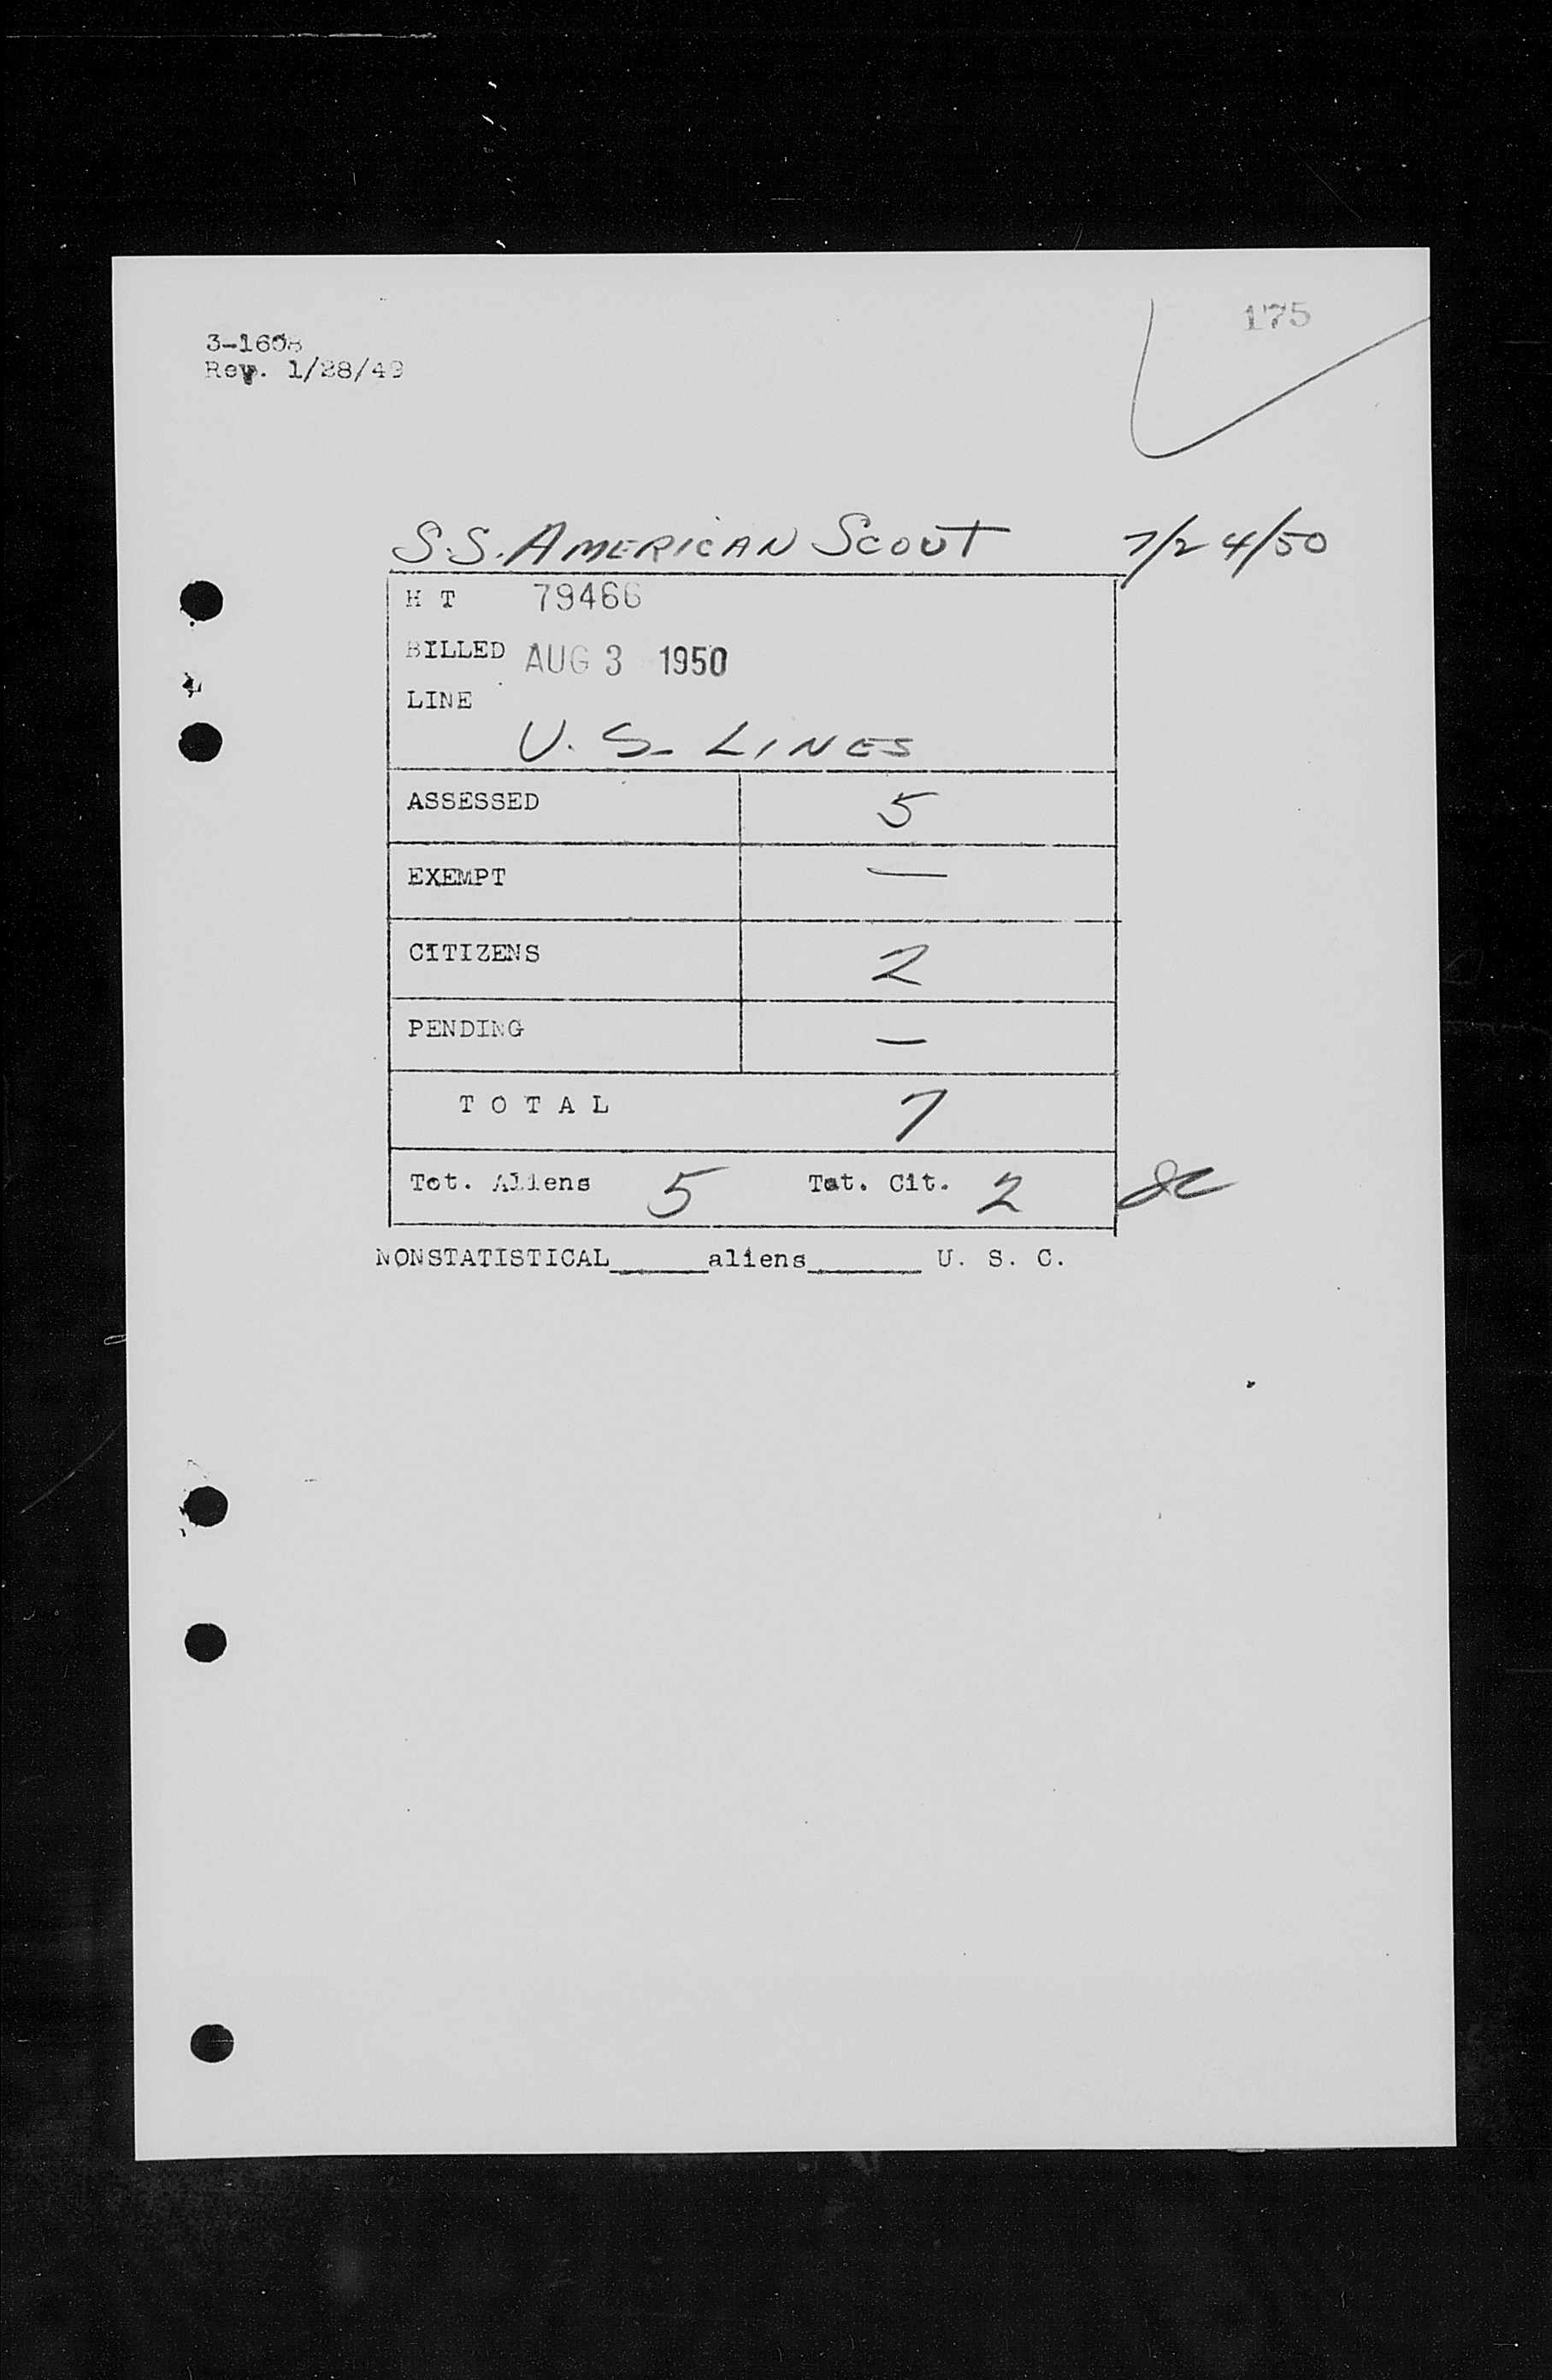 175
3-1608
Rev. 1/28/49
S.S. AMERICAN SCOUT 7/24/50
H T 79466
BILLED AUG 3 1950
LINE
U. S. LINES
ASSESSED 5
EXEMPT —
CITIZENS 2
PENDING —
T O T A L 7
Tot. Aliens 5 Tot. Cit. 2
NONSTATISTICAL______aliens_______ U. S. C.